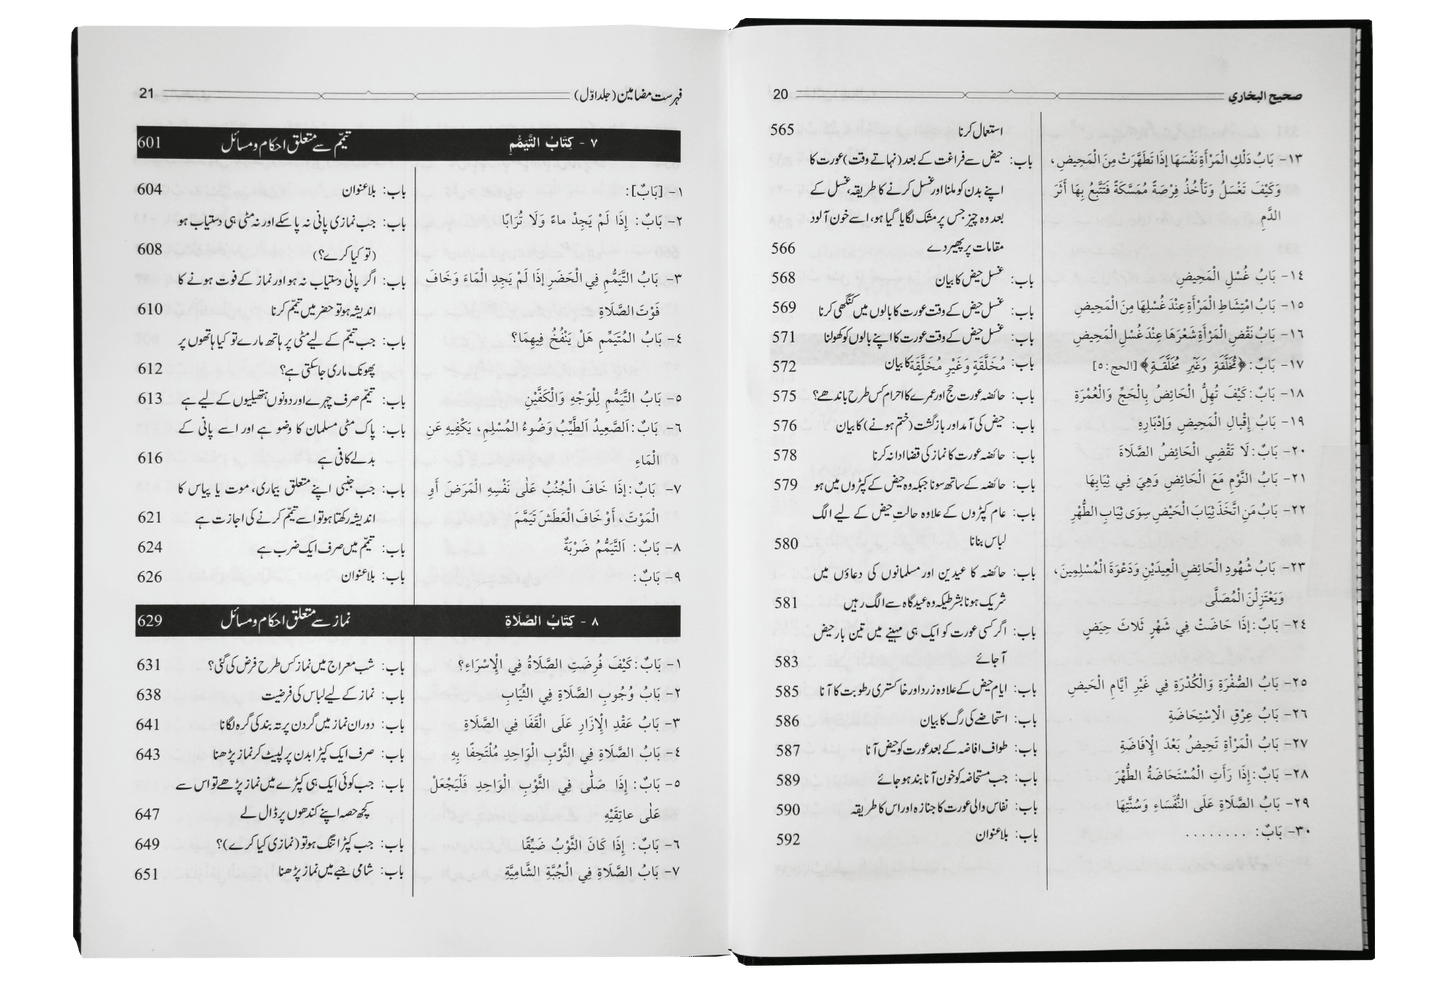 صحيح البخاري 20
استعمال کرنا 565
١٣- بَابُ دَلْكِ الْمَرْأَةِ نَفْسَهَا إِذَا تَطَهَّرَتْ مِنَ الْمَحِيضِ، باب: حیض سے فراغت کے بعد (نہاتے وقت) عورت کا
وَكَيْفَ تَغْسِلُ وَتَأْخُذُ فِرْصَةً مُمَسَّكَةً فَتَتَّبِعُ بِهَا أَثَرَ اپنے بدن کو ملنا اور غسل کرنے کا طریقہ، غسل کے
الدَّمِ بعد وہ چیز جس پر مشک لگایا گیا ہو، اسے خون آلود
مقامات پر پھیر دے 566
١٤- بَابُ غُسْلِ الْمَحِيضِ باب: غسل حیض کا بیان 568
١٥- بَابُ امْتِشَاطِ الْمَرْأَةِ عِنْدَ غُسْلِهَا مِنَ الْمَحِيضِ باب: غسل حیض کے وقت عورت کا بالوں میں کنگھی کرنا 569
١٦- بَابُ نَقْضِ الْمَرْأَةِ شَعْرَهَا عِنْدَ غُسْلِ الْمَحِيضِ باب: غسل حیض کے وقت عورت کا اپنے بالوں کو کھولنا 571
١٧- بَابٌ: ﴿مُّخَلَّقَةٍ وَغَيْرِ مُخَلَّقَةٍ﴾ [الحج: ٥] باب: مُخَلَّقَةٍ وَغَيْرِ مُخَلَّقَةٍ کا بیان 572
١٨- بَابٌ: كَيْفَ تُهِلُّ الْحَائِضُ بِالْحَجِّ وَالْعُمْرَةِ باب: حائضہ عورت حج اور عمرے کا احرام کس طرح باندھے؟ 575
١٩- بَابُ إِقْبَالِ الْمَحِيضِ وَإِدْبَارِهِ باب: حیض کی آمد اور بازگشت (ختم ہونے) کا بیان 576
٢٠- بَابٌ: لَا تَقْضِي الْحَائِضُ الصَّلَاةَ باب: حائضہ عورت کا نماز کی قضا ادا نہ کرنا 578
٢١- بَابُ النَّوْمِ مَعَ الْحَائِضِ وَهِيَ فِي ثِيَابِهَا باب: حائضہ کے ساتھ سونا جبکہ وہ حیض کے کپڑوں میں ہو 579
٢٢- بَابُ مَنِ اتَّخَذَ ثِيَابَ الْحَيْضِ سِوَى ثِيَابِ الطُّهْرِ باب: عام کپڑوں کے علاوہ حالتِ حیض کے لیے الگ
لباس بنانا 580
٢٣- بَابُ شُهُودِ الْحَائِضِ الْعِيدَيْنِ وَدَعْوَةَ الْمُسْلِمِينَ، باب: حائضہ کا عیدین اور مسلمانوں کی دعاؤں میں
وَيَعْتَزِلْنَ الْمُصَلَّى شریک ہونا بشرطیکہ وہ عیدگاہ سے الگ رہیں 581
٢٤- بَابٌ: إِذَا حَاضَتْ فِي شَهْرٍ ثَلَاثَ حِيَضٍ باب: اگر کسی عورت کو ایک ہی مہینے میں تین بار حیض
آ جائے 583
٢٥- بَابُ الصُّفْرَةِ وَالْكُدْرَةِ فِي غَيْرِ أَيَّامِ الْحَيْضِ باب: ایام حیض کے علاوہ زرد اور خاکستری رطوبت کا آنا 585
٢٦- بَابُ عِرْقِ الْاِسْتِحَاضَةِ باب: استحاضے کی رگ کا بیان 586
٢٧- بَابُ الْمَرْأَةِ تَحِيضُ بَعْدَ الْإِفَاضَةِ باب: طواف افاضہ کے بعد عورت کو حیض آنا 587
٢٨- بَابٌ: إِذَا رَأَتِ الْمُسْتَحَاضَةُ الطُّهْرَ باب: جب مستحاضہ کو خون آنا بند ہو جائے 589
٢٩- بَابُ الصَّلَاةِ عَلَى النُّفَسَاءِ وَسُنَّتِهَا باب: نفاس والی عورت کا جنازہ اور اس کا طریقہ 590
٣٠- بَابٌ: ........ باب: بلا عنوان 592
فہرست مضامین (جلد اوّل) 21
٧ - كِتَابُ التَّيَمُّمِ تیمّم سے متعلق احکام و مسائل 601
١- [بَابٌ]: باب: بلا عنوان 604
٢- بَابٌ: إِذَا لَمْ يَجِدْ مَاءً وَلَا تُرَابًا باب: جب نمازی پانی نہ پا سکے اور نہ مٹی ہی دستیاب ہو
(تو کیا کرے؟) 608
٣- بَابُ التَّيَمُّمِ فِي الْحَضَرِ إِذَا لَمْ يَجِدِ الْمَاءَ وَخَافَ باب: اگر پانی دستیاب نہ ہو اور نماز کے فوت ہونے کا
فَوْتَ الصَّلَاةِ اندیشہ ہو تو حضر میں تیمّم کرنا 610
٤- بَابُ الْمُتَيَمِّمِ هَلْ يَنْفُخُ فِيهِمَا؟ باب: جب تیمّم کے لیے مٹی پر ہاتھ مارے تو کیا ہاتھوں پر
پھونک ماری جا سکتی ہے؟ 612
٥- بَابُ التَّيَمُّمِ لِلْوَجْهِ وَالْكَفَّيْنِ باب: تیمّم صرف چہرے اور دونوں ہتھیلیوں کے لیے ہے 613
٦- بَابٌ: اَلصَّعِيدُ الطَّيِّبُ وَضُوءُ الْمُسْلِمِ، يَكْفِيهِ عَنِ باب: پاک مٹی مسلمان کا وضو ہے اور اسے پانی کے
الْمَاءِ بدلے کافی ہے 616
٧- بَابٌ: إِذَا خَافَ الْجُنُبُ عَلَى نَفْسِهِ الْمَرَضَ أَوِ باب: جب جنبی اپنے متعلق بیماری، موت یا پیاس کا
الْمَوْتَ، أَوْ خَافَ الْعَطَشَ تَيَمَّمَ اندیشہ رکھتا ہو تو اسے تیمّم کرنے کی اجازت ہے 621
٨- بَابٌ: اَلتَّيَمُّمُ ضَرْبَةٌ باب: تیمّم میں صرف ایک ضرب ہے 624
٩- بَابٌ: باب: بلا عنوان 626
٨ - كِتَابُ الصَّلَاةِ نماز سے متعلق احکام و مسائل 629
١- بَابٌ: كَيْفَ فُرِضَتِ الصَّلَاةُ فِي الْإِسْرَاءِ؟ باب: شب معراج میں نماز کس طرح فرض کی گئی؟ 631
٢- بَابُ وُجُوبِ الصَّلَاةِ فِي الثِّيَابِ باب: نماز کے لیے لباس کی فرضیت 638
٣- بَابُ عَقْدِ الْإِزَارِ عَلَى الْقَفَا فِي الصَّلَاةِ باب: دوران نماز میں گردن پر تہ بند کی گرہ لگانا 641
٤- بَابُ الصَّلَاةِ فِي الثَّوْبِ الْوَاحِدِ مُلْتَحِفًا بِهِ باب: صرف ایک کپڑا بدن پر لپیٹ کر نماز پڑھنا 643
٥- بَابٌ: إِذَا صَلَّى فِي الثَّوْبِ الْوَاحِدِ فَلْيَجْعَلْ باب: جب کوئی ایک ہی کپڑے میں نماز پڑھے تو اس سے
عَلَى عَاتِقَيْهِ کچھ حصہ اپنے کندھوں پر ڈال لے 647
٦- بَابٌ: إِذَا كَانَ الثَّوْبُ ضَيِّقًا باب: جب کپڑا تنگ ہو تو (نمازی کیا کرے)؟ 649
٧- بَابُ الصَّلَاةِ فِي الْجُبَّةِ الشَّامِيَّةِ باب: شامی جبے میں نماز پڑھنا 651